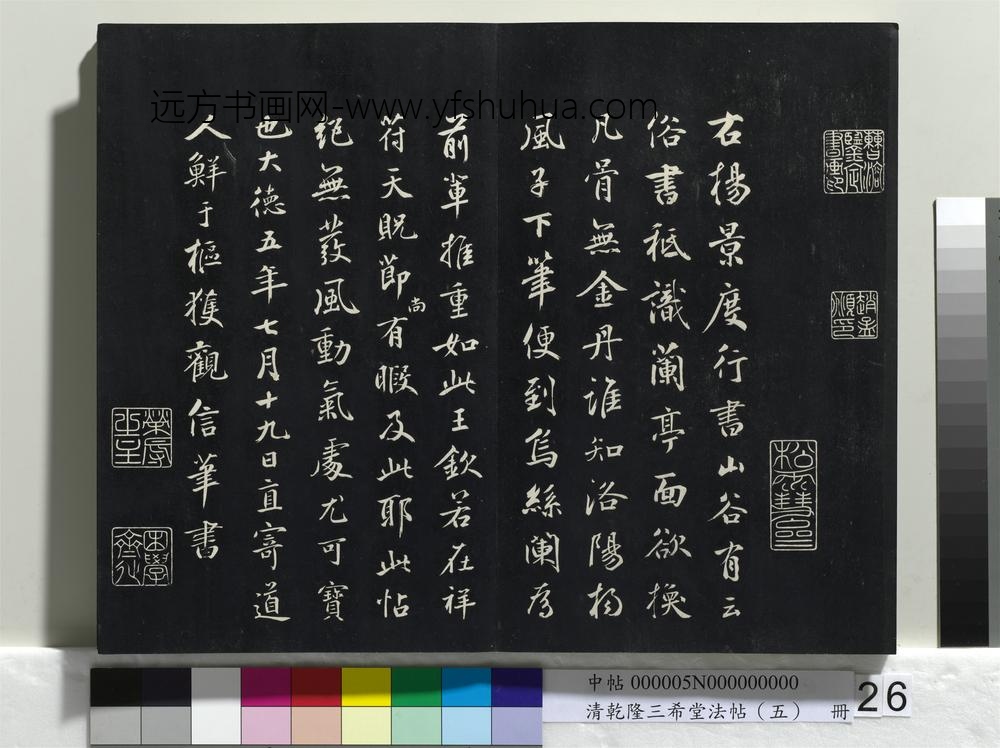 右楊景度行書山谷有云
俗書秪識蘭亭面欲換
凡骨無金丹誰知洛陽楊
風子下筆便到烏絲闌為
前輩推重如此王欽若在祥
符天貺節尚有暇及此耶此帖
絕無蔉風動氣處尤可寶
也大德五年七月十九日直寄道
人鮮于樞獲觀信筆書
困學齋
远方书画网-www.yfshuhua.com
中帖 000005N000000000
清乾隆三希堂法帖（五） 冊
26